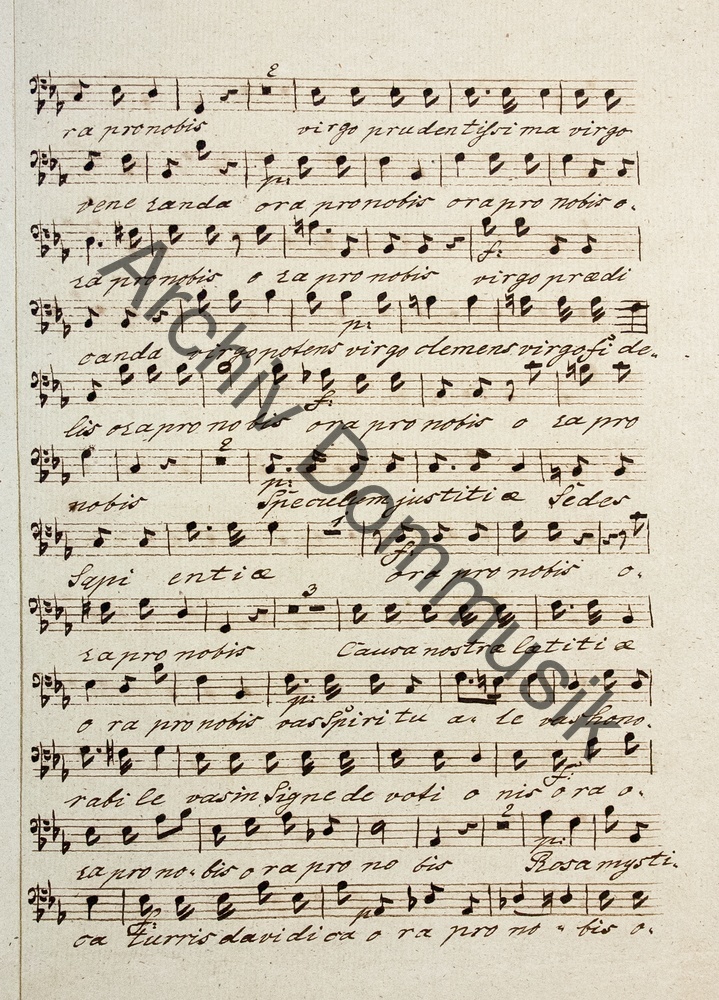 2
ra pro nobis virgo prudentissima virgo
p:
veneranda ora pro nobis ora pro nobis o-
f:
ra pro nobis o ra pro nobis virgo prædi
p:
canda virgo potens virgo clemens virgo fide-
f:
lis ora pro nobis ora pro nobis o ra pro
2
p:
nobis Speculum justitiæ Sedes
1
f:
Sapi entiæ ora pro nobis o-
3
ra pro nobis Causa nostra lætitiæ
p:
o ra pro nobis vas Spiritu a- le vas hono-
f:
rabi le vas in Signe de voti o nis o ra o-
2
p:
ra pro no- bis o ra pro no bis Rosa mysti-
f
p
ca turris davidica o ra pro no - bis o-
Archiv Dommusik